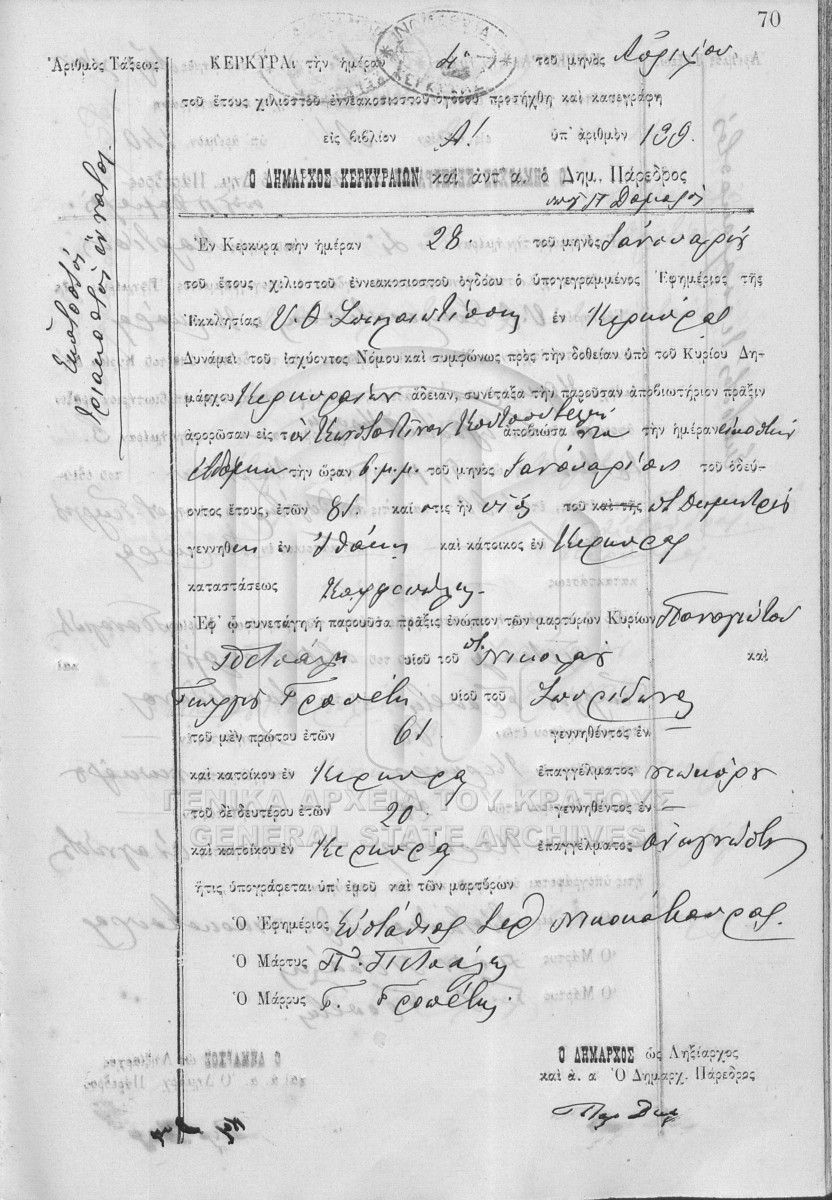 70
Ἀριθμὸς Τάξεως
Ἑκατοστὸν
τριακοστὸν ἔννατον
ΚΕΡΚΥΡΑ, τὴν ἡμέραν 4 τοῦ μηνὸς Ἀπριλίου
τοῦ ἔτους χιλιοστοῦ ἐννεακοσιοστοῦ ὀγδόου προσήχθη καὶ κατεγράφη
εἰς βιβλίον Α! ὑπ' ἀριθμὸν 139.
Ο ΔΗΜΑΡΧΟΣ ΚΕΡΚΥΡΑΙΩΝ καὶ ἀντ' α. ὁ Δημ. Πάρεδρος
Ἐν Κερκύρᾳ τὴν ἡμέραν 28 τοῦ μηνὸς Ἰανουαρίου
τοῦ ἔτους χιλιοστοῦ ἐννεακοσιοστοῦ ὀγδόου ὁ ὑπογεγραμμένος Ἐφημέριος τῆς
Ἐκκλησίας Υ. Θ. Σπηλαιωτίσσης ἐν Κερκύρᾳ
Δυνάμει τοῦ ἰσχύοντος Νόμου καὶ συμφώνως πρὸς τὴν δοθεῖσαν ὑπὸ τοῦ Κυρίου Δη-
μάρχου Κερκυραίων ἄδειαν, συνέταξα τὴν παροῦσαν ἀποβιωτήριον πρᾶξιν
ἀφορῶσαν εἰς τὸν Κωνσταντῖνον ἀποβιώσαντα τὴν ἡμέραν εἰκοστὴν
ἑβδόμην τὴν ὥραν 6 μ.μ. τοῦ μηνὸς Ἰανουαρίου τοῦ ὁδεύ-
οντος ἔτους, ἐτῶν 81. καὶ ὅστις ἦν υἱὸς τοῦ καὶ τῆς π. Δημητρίου
γεννηθεὶς ἐν Ἰθάκῃ καὶ κάτοικος ἐν Κερκύρᾳ
καταστάσεως
Ἐφ' ᾧ συνετάγη ἡ παροῦσα πρᾶξις ἐνώπιον τῶν μαρτύρων Κυρίων Παναγιώτου
Πετσάλη υἱοῦ τοῦ π. Νικολάου καὶ
Γεωργίου Γραπέτη υἱοῦ τοῦ Σπυρίδωνος
τοῦ μὲν πρώτου ἐτῶν 61. γεννηθέντος ἐν —
καὶ κατοίκου ἐν Κερκύρᾳ ἐπαγγέλματος νεωκόρου
ΓΕΝΙΚΑ ΑΡΧΕΙΑ ΤΟΥ ΚΡΑΤΟΥΣ
τοῦ δὲ δευτέρου ἐτῶν 20. γεννηθέντος ἐν —
GENERAL STATE ARCHIVES
καὶ κατοίκου ἐν Κερκύρᾳ ἐπαγγέλματος ἀναγνώστου
ἥτις ὑπογράφεται ὑπ' ἐμοῦ καὶ τῶν μαρτύρων
Ὁ Ἐφημέριος Εὐστάθιος
Ὁ Μάρτυς Π. Πετσάλης
Ὁ Μάρρυς Γ. Γραπέτης
Ο ΔΗΜΑΡΧΟΣ ὡς Ληξίαρχος
καὶ ἀ. α Ὁ Δημαρχ. Πάρεδρος